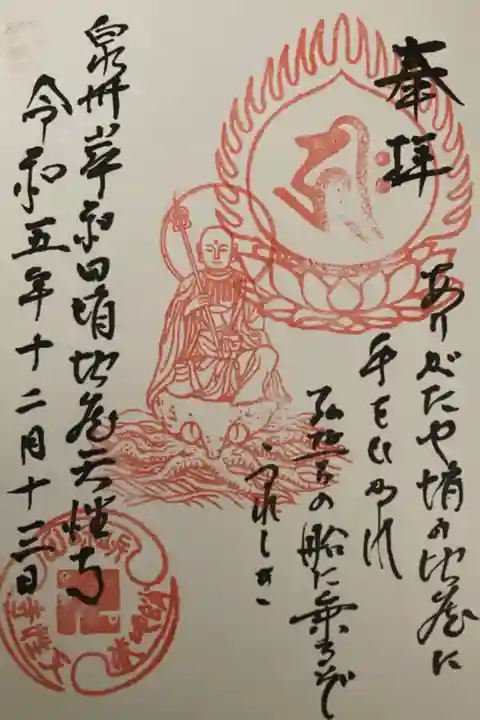 奉拝
ありがたや蛸の地蔵に
手をひかれ
弘誓の船に乗るぞ
うれしき
泉州岸和田蛸地蔵天性寺
令和五年十二月十三日